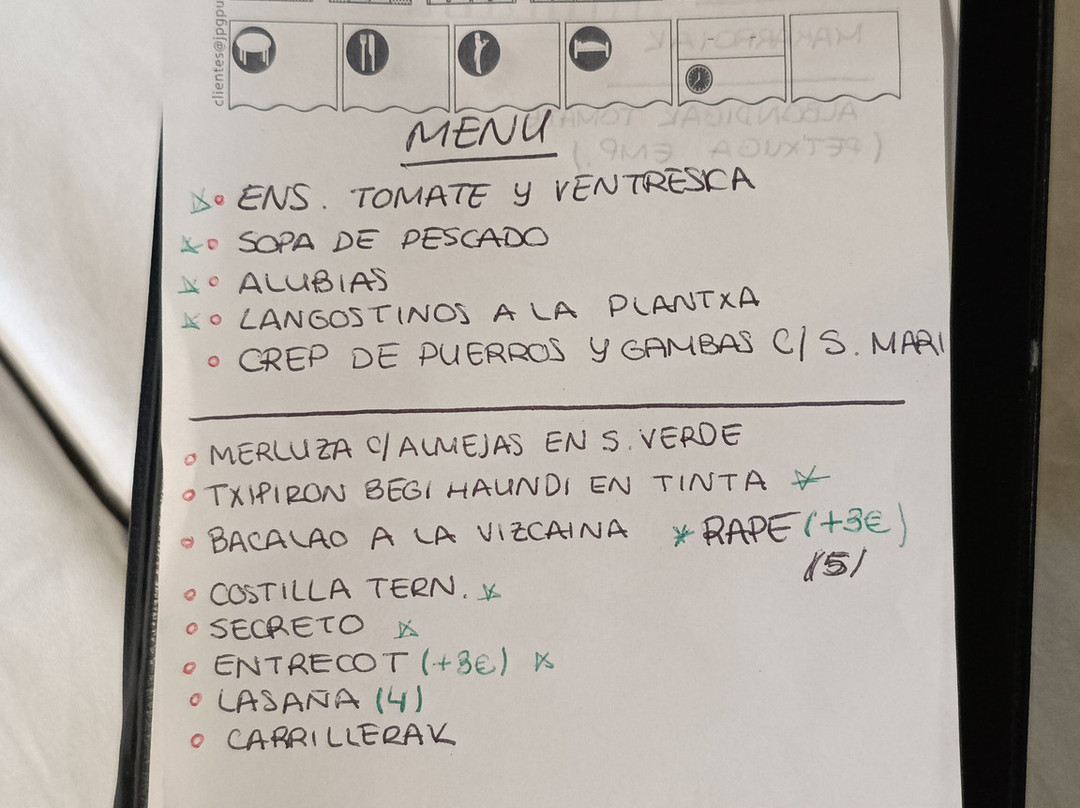 clientes@jpgpu
MENU
ENS. TOMATE Y VENTRESCA
SOPA DE PESCADO
ALUBIAS
LANGOSTINOS A LA PLANTXA
CREP DE PUERROS Y GAMBAS C/ S. MARI
MERLUZA C/ ALMEJAS EN S. VERDE
TXIPIRON BEGI HAUNDI EN TINTA
BACALAO A LA VIZCAINA * RAPE (+3€)
(5)
COSTILLA TERN.
SECRETO
ENTRECOT (+3€)
LASAÑA (4)
CARRILLERAK